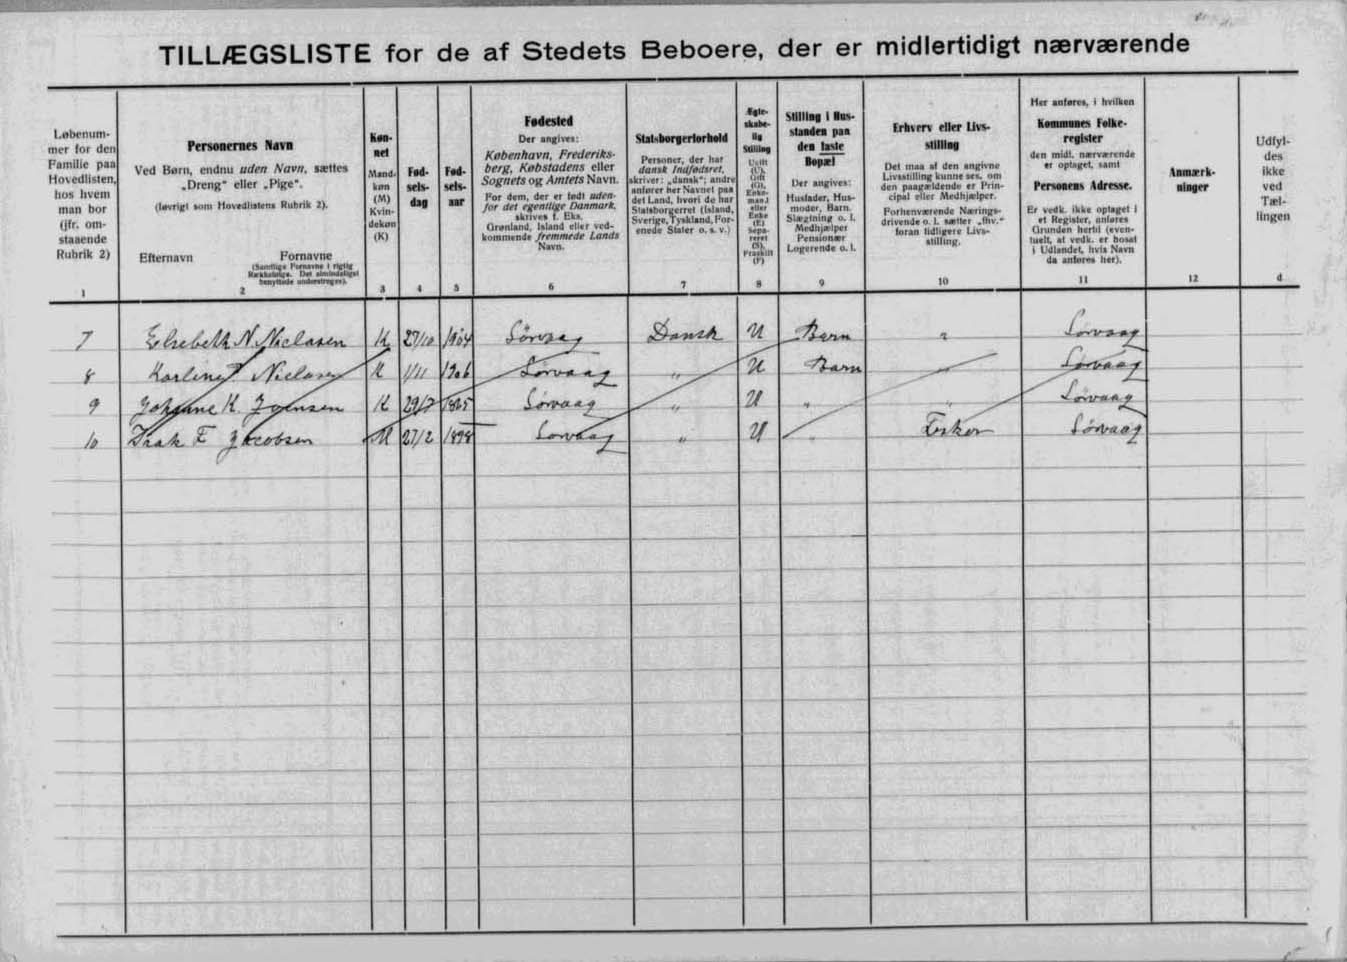 TILLÆGSLISTE for de af Stedets Beboere, der er midlertidigt nærværende
Løbenum-
mer for den
Familie paa
Hovedlisten,
hos hvem
man bor
(jfr. om-
staaende
Rubrik 2)
1
Personernes Navn
Ved Børn, endnu uden Navn, sættes
„Dreng" eller „Pige".
(Iøvrigt som Hovedlistens Rubrik 2).
Efternavn
Fornavne
(Samtlige Fornavne i rigtig
Rækkefølge. Det almindeligst
benyttede understreges).
2
Køn-
net
Mand-
køn
(M)
Kvin-
dekøn
(K)
3
Fød-
sels-
dag
4
Fød-
sels-
aar
5
Fødested
Der angives:
København, Frederiks-
berg, Købstadens eller
Sognets og Amtets Navn.
For dem, der er født uden-
for det egentlige Danmark,
skrives f. Eks.
Grønland, Island eller ved-
kommende fremmede Lands
Navn.
6
Statsborgerforhold
Personer, der har
dansk Indfødsret,
skriver: „dansk"; andre
anfører her Navnet paa
det Land, hvori de har
Statsborgerret (Island,
Sverige, Tyskland, For-
enede Stater o. s. v.)
7
Ægte-
skabe-
lig
Stilling
Ugift
(U),
Gift
(G),
Enke-
mand
eller
Enke
(E)
Sepa-
reret
(S),
Fraskilt
(F)
8
Stilling i Hus-
standen paa
den faste
Bopæl
Der angives:
Husfader, Hus-
moder, Barn,
Slægtning o. l.
Medhjælper
Pensionær
Logerende o. l.
9
Erhverv eller Livs-
stilling
Det maa af den angivne
Livsstilling kunne ses, om
den paagældende er Prin-
cipal eller Medhjælper.
Forhenværende Nærings-
drivende o. l. sætter „fhv."
foran tidligere Livs-
stilling.
10
Her anføres, i hvilken
Kommunes Folke-
register
den midl. nærværende
er optaget, samt
Personens Adresse.
Er vedk. ikke optaget i
et Register, anføres
Grunden hertil (even-
tuelt, at vedk. er bosat
i Udlandet, hvis Navn
da anføres her).
11
Anmærk-
ninger
12
Udfyl-
des
ikke
ved
Tæl-
lingen
d
7 Elsebeth N. Niclasen K 27/10 1904 Sörvaag Dansk U Barn „ Sörvaag
8 Karline Niclasen K 1/11 1906 Sörvaag „ U Barn „ Sörvaag
9 Johanne K. Joensen K 29/7 1865 Sörvaag „ U „ „ Sörvaag
10 Isak F Jacobsen M 27/2 1898 Sörvaag „ U „ Fisker Sörvaag